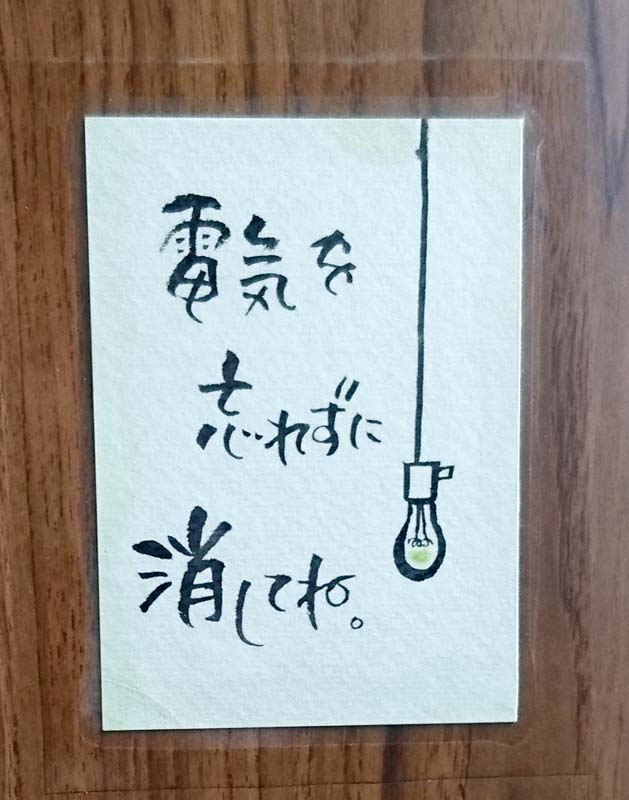 電気を
忘れずに
消してね。